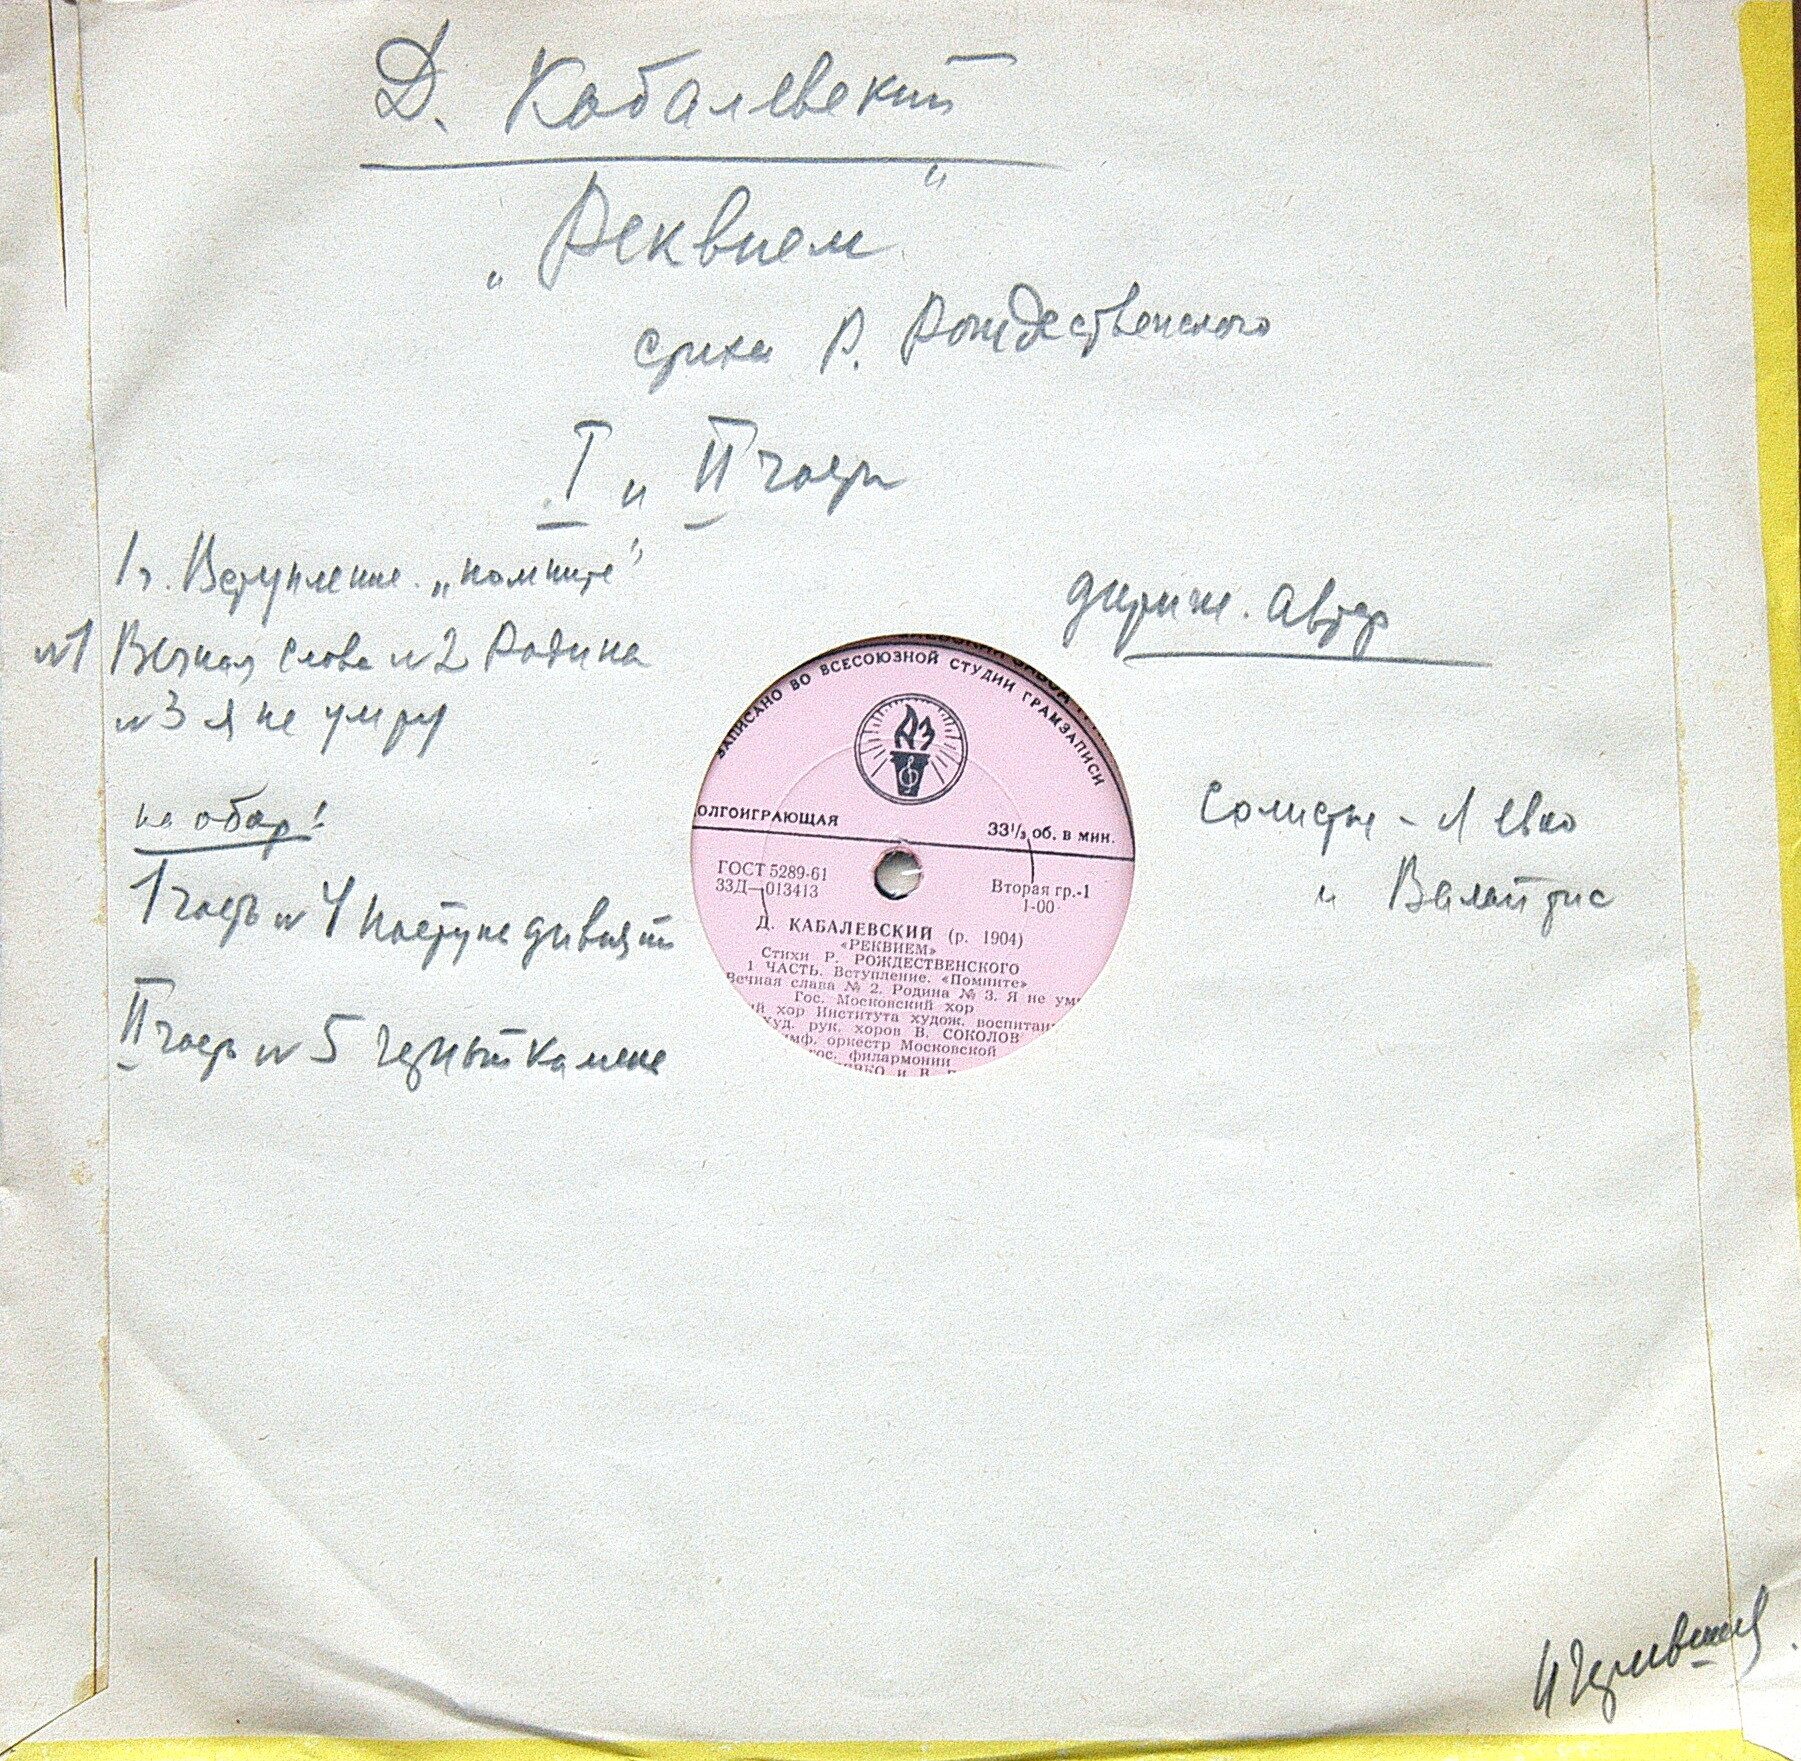 Д. Кабалевский
„Реквием“
стихи Р. Рождественского
I и II части
1 ч. Вступление. „Помните“
№1 Вечная слава №2 Родина
№3 Я не умру
на обор!
1 часть №4 Поступь дивизий
II часть №5 Черный камень
дириж. автор
Солисты - Левко
и Валайтис
ЗАПИСАНО ВО ВСЕСОЮЗНОЙ СТУДИИ ГРАМЗАПИСИ
АЗ
ОЛГОИГРАЮЩАЯ
33⅓ об. в мин.
ГОСТ 5289-61
33Д—013413
Вторая гр.-1
1-00
Д. КАБАЛЕВСКИЙ (р. 1904)
«РЕКВИЕМ»
Стихи Р. РОЖДЕСТВЕНСКОГО
1 ЧАСТЬ. Вступление. «Помните»
Вечная слава № 2. Родина № 3. Я не ум
Гос. Московский хор
ий хор Института худож. воспитан
Худ. рук. хоров В. СОКОЛОВ
имф. оркестр Московской
гос. филармонии
ЕВКО и В.